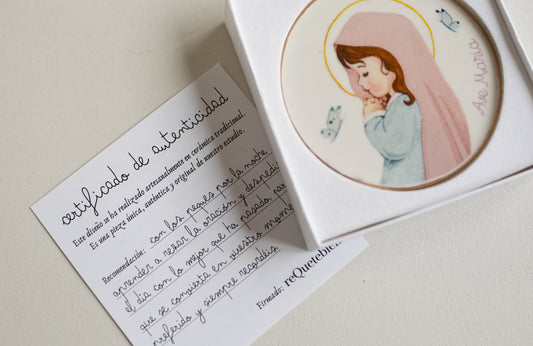 certificado de autenticidad
Este diseño se ha realizado artesanalmente en cerámica tradicional.
Es una pieza única, auténtica y original de nuestro estudio.
Recomendación: con los peques por la noche
aprender a rezar la oración y despedi
el día con lo mejor que ha pasado, pa
que se convierta en vuestro mome
preferido y siempre recordéis
Firmado: reQuetebie
Ave María